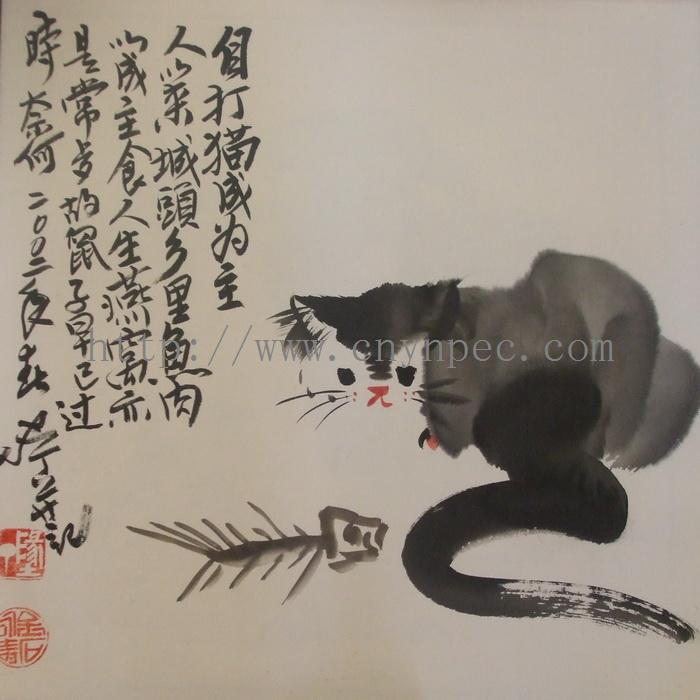 自打猫成为主
人以来城頭乡里鱼肉
以成主食人生燕窝亦
是常步的鼠子早已过
時奈何二〇〇二年春
http://www.cnynpec.com